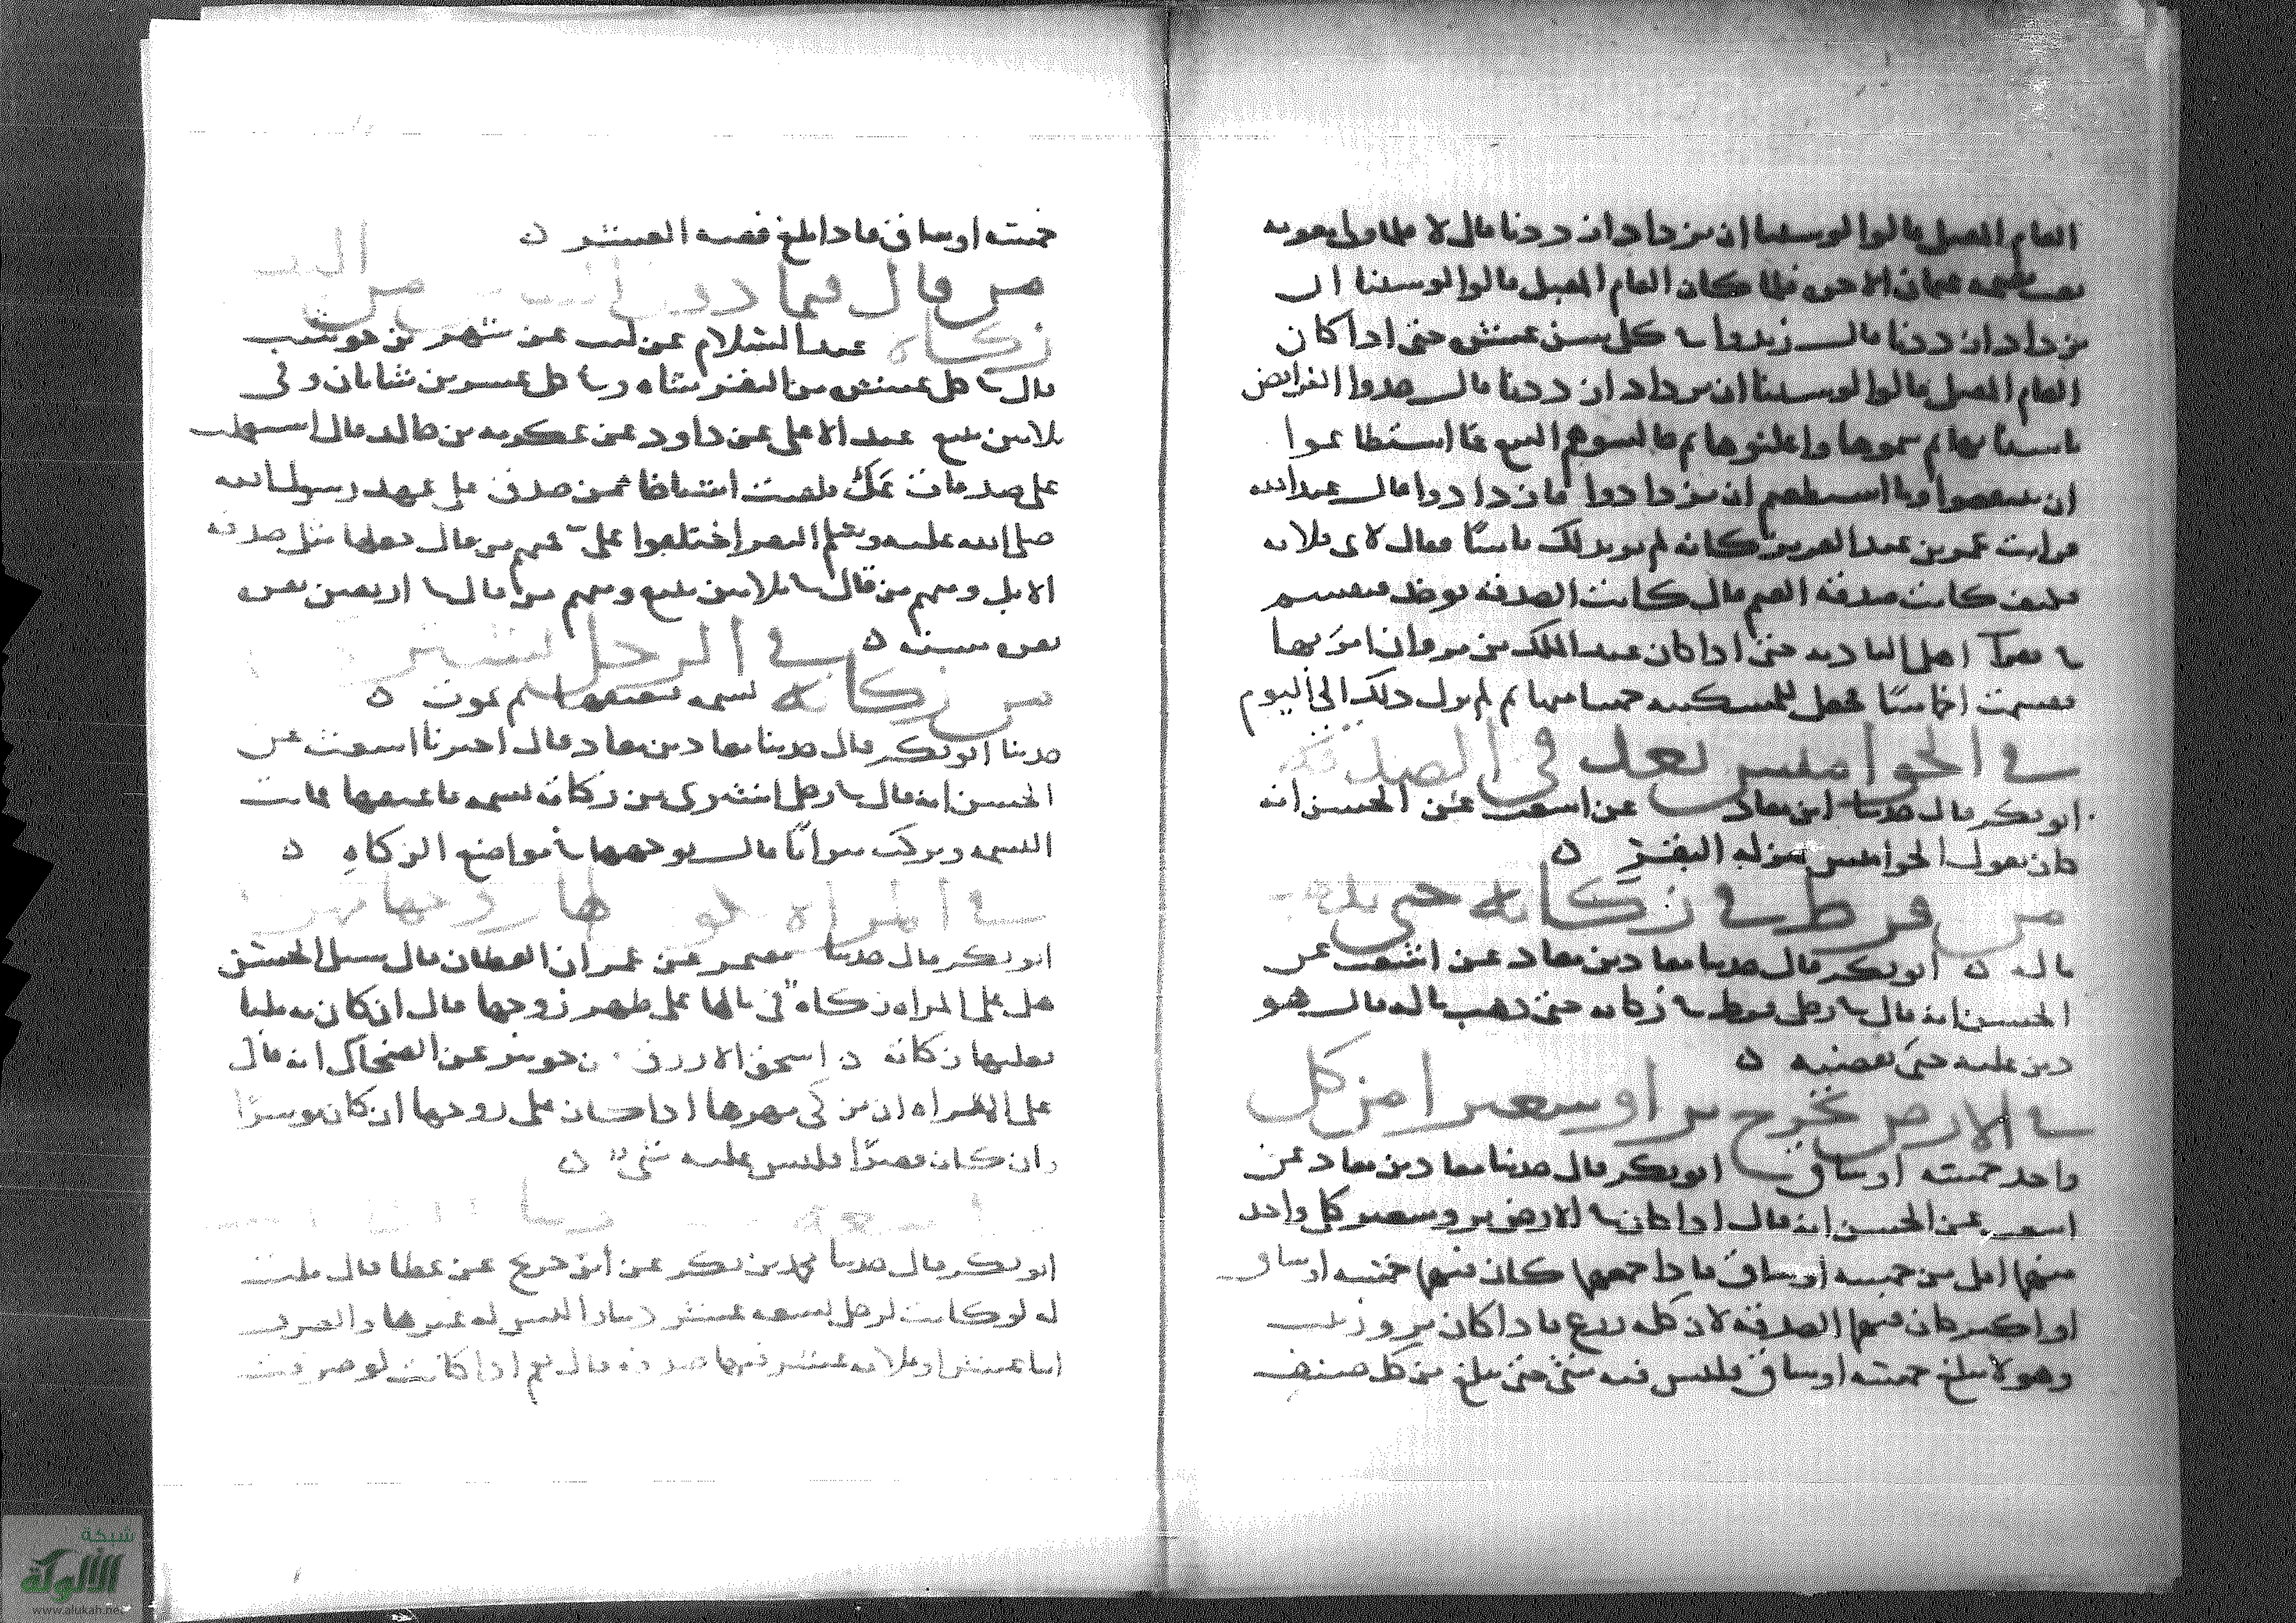 العام المقبل قالوا لو سنينا ان نزداد ازددنا قال لا فلما ولي معويه
بعث عثمان الاخرى فلما كان العام المقبل قالوا لو سنينا ان
نزداد ازددنا قال زيدوا في كل سن عشرا حتى اذا كان
العام المقبل قالوا لو سنينا ان نزداد ازددنا قال خذوا الفرايض
باسنانها ثم سموها واعلنوها ثم خالسوهم البيع فما استطاعوا
ان ينقصوا وما استطعتم ان تزدادوا فازدادوا قال عبد الله
فرايت عمر بن عبد العزيز كانه لم ير بذلك باسا فقال لابي قلابه
فكيف كانت صدقه الغنم قال كانت الصدقه توخذ فتقسم
في فقرا اهل الباديه حتى اذا كان عبد الملك بن مروان امر بها
فقسمت اخماسا فجعل للمسكينه خمسا منها ثم لم يزل ذلك الى اليوم
في الجواميس تعد في الصدقه
ابو بكر قال حدثنا ابن معاذ عن اشعث عن الحسن انه
كان يقول الجواميس بمنزله البقر ه
من فرط في زكاته حتى يذهب
ماله ه ابو بكر قال حدثنا معاذ بن معاذ عن اشعث عن
الحسن انه قال في رجل فرط في زكاته حتى ذهب ماله قال هو
دين عليه حتى يقضيه ه
في الارض تخرج برا وشعيرا من كل
واحد خمسة اوساق ابو بكر قال حدثنا معاذ بن معاذ عن
اشعث عن الحسن انه قال اذا كان في الارض بر وشعير كل واحد
منهما اقل من خمسه اوساق فاذا جمعهما كان فيهما خمسه اوساق
او اكثر كان فيهما الصدقه لان كله زرع فاذا كان بر وزبيب
وهو لا يبلغ خمسة اوساق فليس فيه شي حتى يبلغ من كل صنف
خمسة اوساق فاذا بلغ ففيه العشر ه
من قال فيما دون من
زكاة عبد السلام عن ليث عن شهر بن حوشب
قال في كل عشر من البقر شاه وفي كل عشرين شاتان وفي
ثلاثين تبيع عبد الاعلى عن داود عن عكرمه بن خالد قال استعملت
على صدقات عك فلقيت اشياخا ممن صدق على عهد رسول الله
صلى الله عليه وسلم البقر اختلفوا علي فمنهم من قال اجعلها مثل صدقه
الابل ومنهم من قال في ثلاثين تبيع ومنهم من قال في اربعين بقره
بقره مسنه ه في الرجل يشتري
من زكاته نسمه فيعتقها ثم تموت ه
حدثنا ابو بكر قال حدثنا معاذ بن معاذ قال اخبرنا اشعث عن
الحسن انه قال في رجل اشترى من زكاته نسمه فاعتقها فماتت
النسمه وتركت ميراثا قال يوجهها في مواضع الزكاه ه
في المراه زوجها
ابو بكر قال حدثنا معتمر عن عمران القطان قال سئل الحسن
هل على المراه زكاه في مالها على ظهر زوجها قال ان كان مليا
فعليها زكاته ه اسحق الازرق عن جويبر عن الضحاك انه قال
على المراه ان تزكي مهرها اذا كان على زوجها ان كان موسرا
وان كان فقيرا فليس عليه شي ه
ابو بكر قال حدثنا محمد بن بكر عن ابن جريج عن عطا قال قلت
له لو كانت لرجل تسعه عشر دينارا ليس له غيرها والصرف
اثنا عشر او ثلاثه عشر فيها صدقه قال نعم اذا كانت لو صرفت